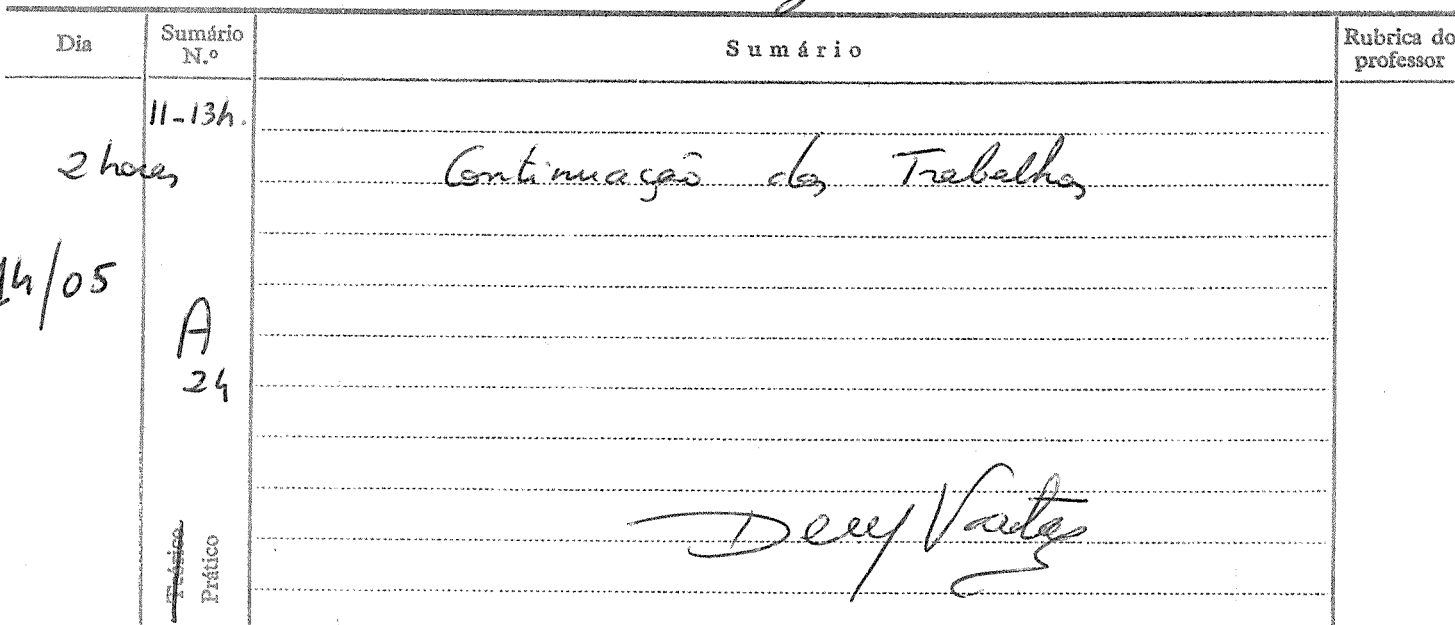 Dia
Sumário N.º
Sumário
Rubrica do professor
11-13h.
2 horas
Continuação dos Trabalhos
14/05
A
24
Teórico
Prático